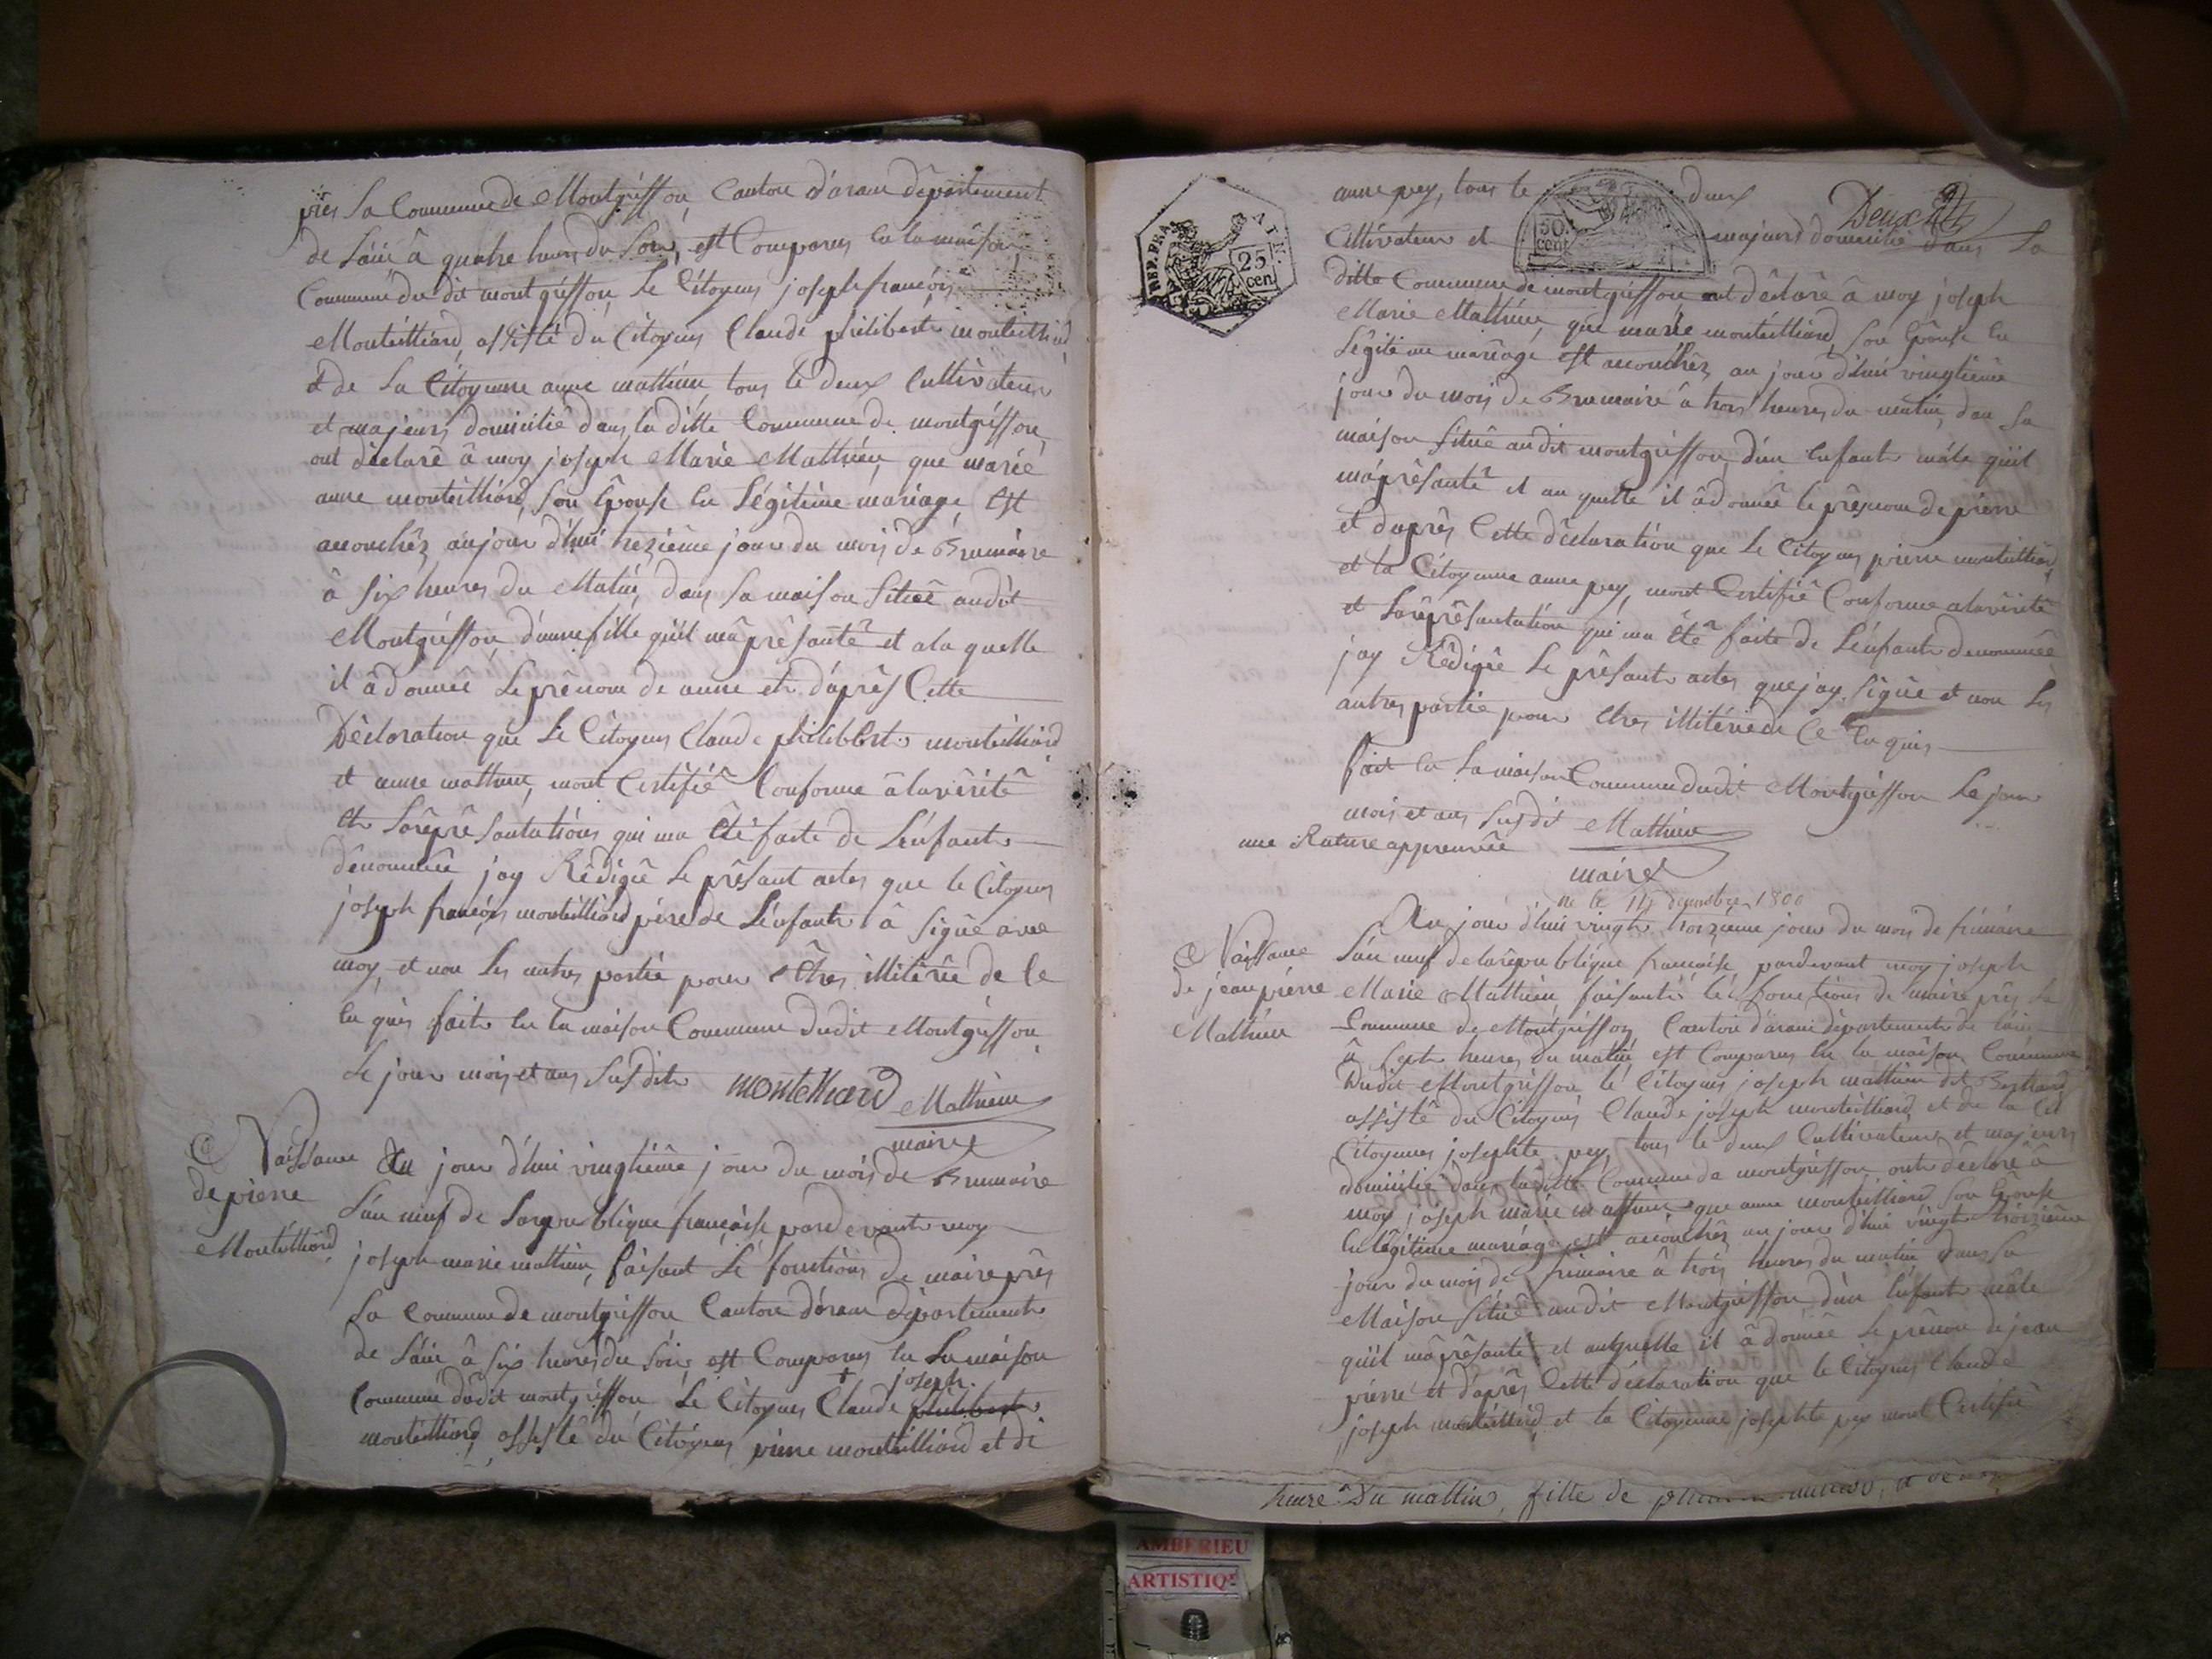 près la Commune de Montgriffon, Canton d'aranc département
de L'ain â quatre heures du Soir, est Comparus en la maison
Commune du dit montgriffon Le Citoyens joseph françois
Monteilliard, assisté du Citoyens Claude philiberte monteilliard
et de La Citoyenne anne mathieu tous le deux Cultivateur
et majeurs domicilié dans la ditte Commune de montgriffon,
ont déclaré â moy joseph Marie Mathieu, que marie
anne monteilliard, son Epouse en Légitime mariage est
accouchéz aujour d'hui trezième jour du mois de Brumaire
â six heures du Matin, dans sa maison Située audit
Montgriffon, d'unne fille qu'il mâ présanté et a la quelle
il â donnée Le prénom de anne et d'après Cette
Déclaration que Le Citoyens Claude philibert monteilliard
et anne mathieu, mont Certifié Conforme â la vérité
et La réprésantations qui ma été faite de L'enfant
dénommée, jay Rédigée Le présant actes que le Citoyens
joseph françois monteilliard père de L'enfant â Signé avec
moy, et non Les autres partie pour Etres illitérée de ce
en quis fait en la maison Commune dudit Montgriffon
Le jour mois et ans Susdit monteilliard Mathieu
maire
Naissance
de pierre
Monteilliard
Au jour d'hui vingtième jour du mois de Brumaire
L'an neuf de La republique française pardevant moy
joseph marie mathieu, faisant Lé fonctions de maire près
La Commune de montgriffon Canton d'aranc département
de L'ain â six heures du soir est Comparus en La maison
joseph
Commune dudit montgriffon Le Citoyens Claude philibert
monteilliard, assisté du Citoyens pierre monteilliard et de
Deux
anne pey, tous le deux
Cultivateur et majeurs domicilié dans La
ditte Commune de montgriffon ont déclaré â moy joseph
Marie Mathieu, que marie monteilliard, son Epouse en
Légitime mariage est accouchéz au jour d'hui vingtième
jour du mois de Brumaire â trois heures du matin, dan sa
maison Située audit montgriffon, d'un Enfant mâle qu'il
mâ présanté et au quelle il â donnée le prénom de pierre
et d'après Cette déclaration que Le Citoyens pierre monteilliard
et la Citoyenne anne pey, mont Certifié Conforme a la vérité
et La réprésantation qui ma été faite de L'enfant denommée
jay Rédigée Le présant actes que jay Signé et non Les
autres partie pour Etres illitérée de Ce En quis
fait En La maison Commune dudit Montgriffon Le jour
mois et ans Susdit Mathieu
une Rature approuvée
maire
né le 14 decembre 1800
Naissance
de jean pierre
Mathieu
Au jour d'hui vingt troizième jour du mois de frimaire
L'an neuf de la république française, pardevant moy joseph
Marie Mathieu faisant lé fonctions de maire près La
Commune de Montgriffon, Canton d'aranc département de l'ain
â sept heures du matin est Comparus En la maison Commune
Dudit Montgriffon lé Citoyens joseph mathieu dit
assisté du Citoyens Claude joseph monteilliard, et de la
Citoyenne josephte pey, tous le deux Cultivateurs et majeurs
domicilié dans la ditte Commune de montgriffon ont déclaré â
moy joseph marie mathieu que anne monteilliard, son Epouse
En légitime mariage est accouchéz au jour d'hui vingt troizième
jour du mois de frimaire â trois heures du matin dans sa
Maison Située audit Montgriffon d'un Enfant mâle
qu'il mâ présanté et auquelle il â donnée Le prénom de jean
pierre et d'après Cette déclaration que le Citoyens Claude
joseph monteilliard et la Citoyenne josephte pey mont Certifié
heure Du mattin, fille de
REP. FRA.
AIN.
25
cen
50
cent
AMBERIEU
ARTISTIQ